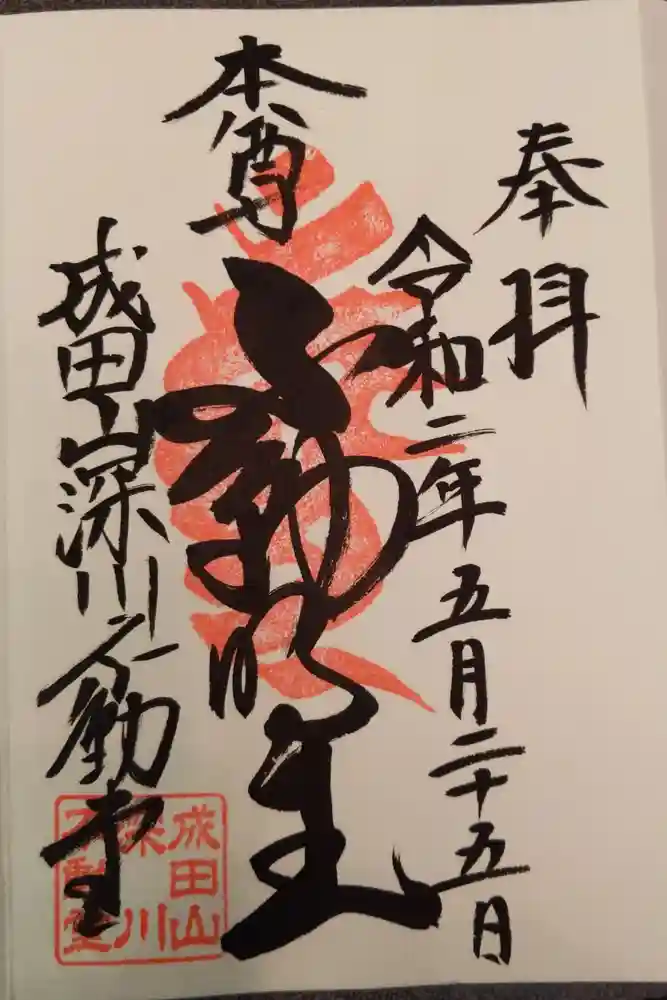 奉拝
令和二年五月二十五日
本尊
不動明王
成田山深川不動堂
成田山
深川
不動堂